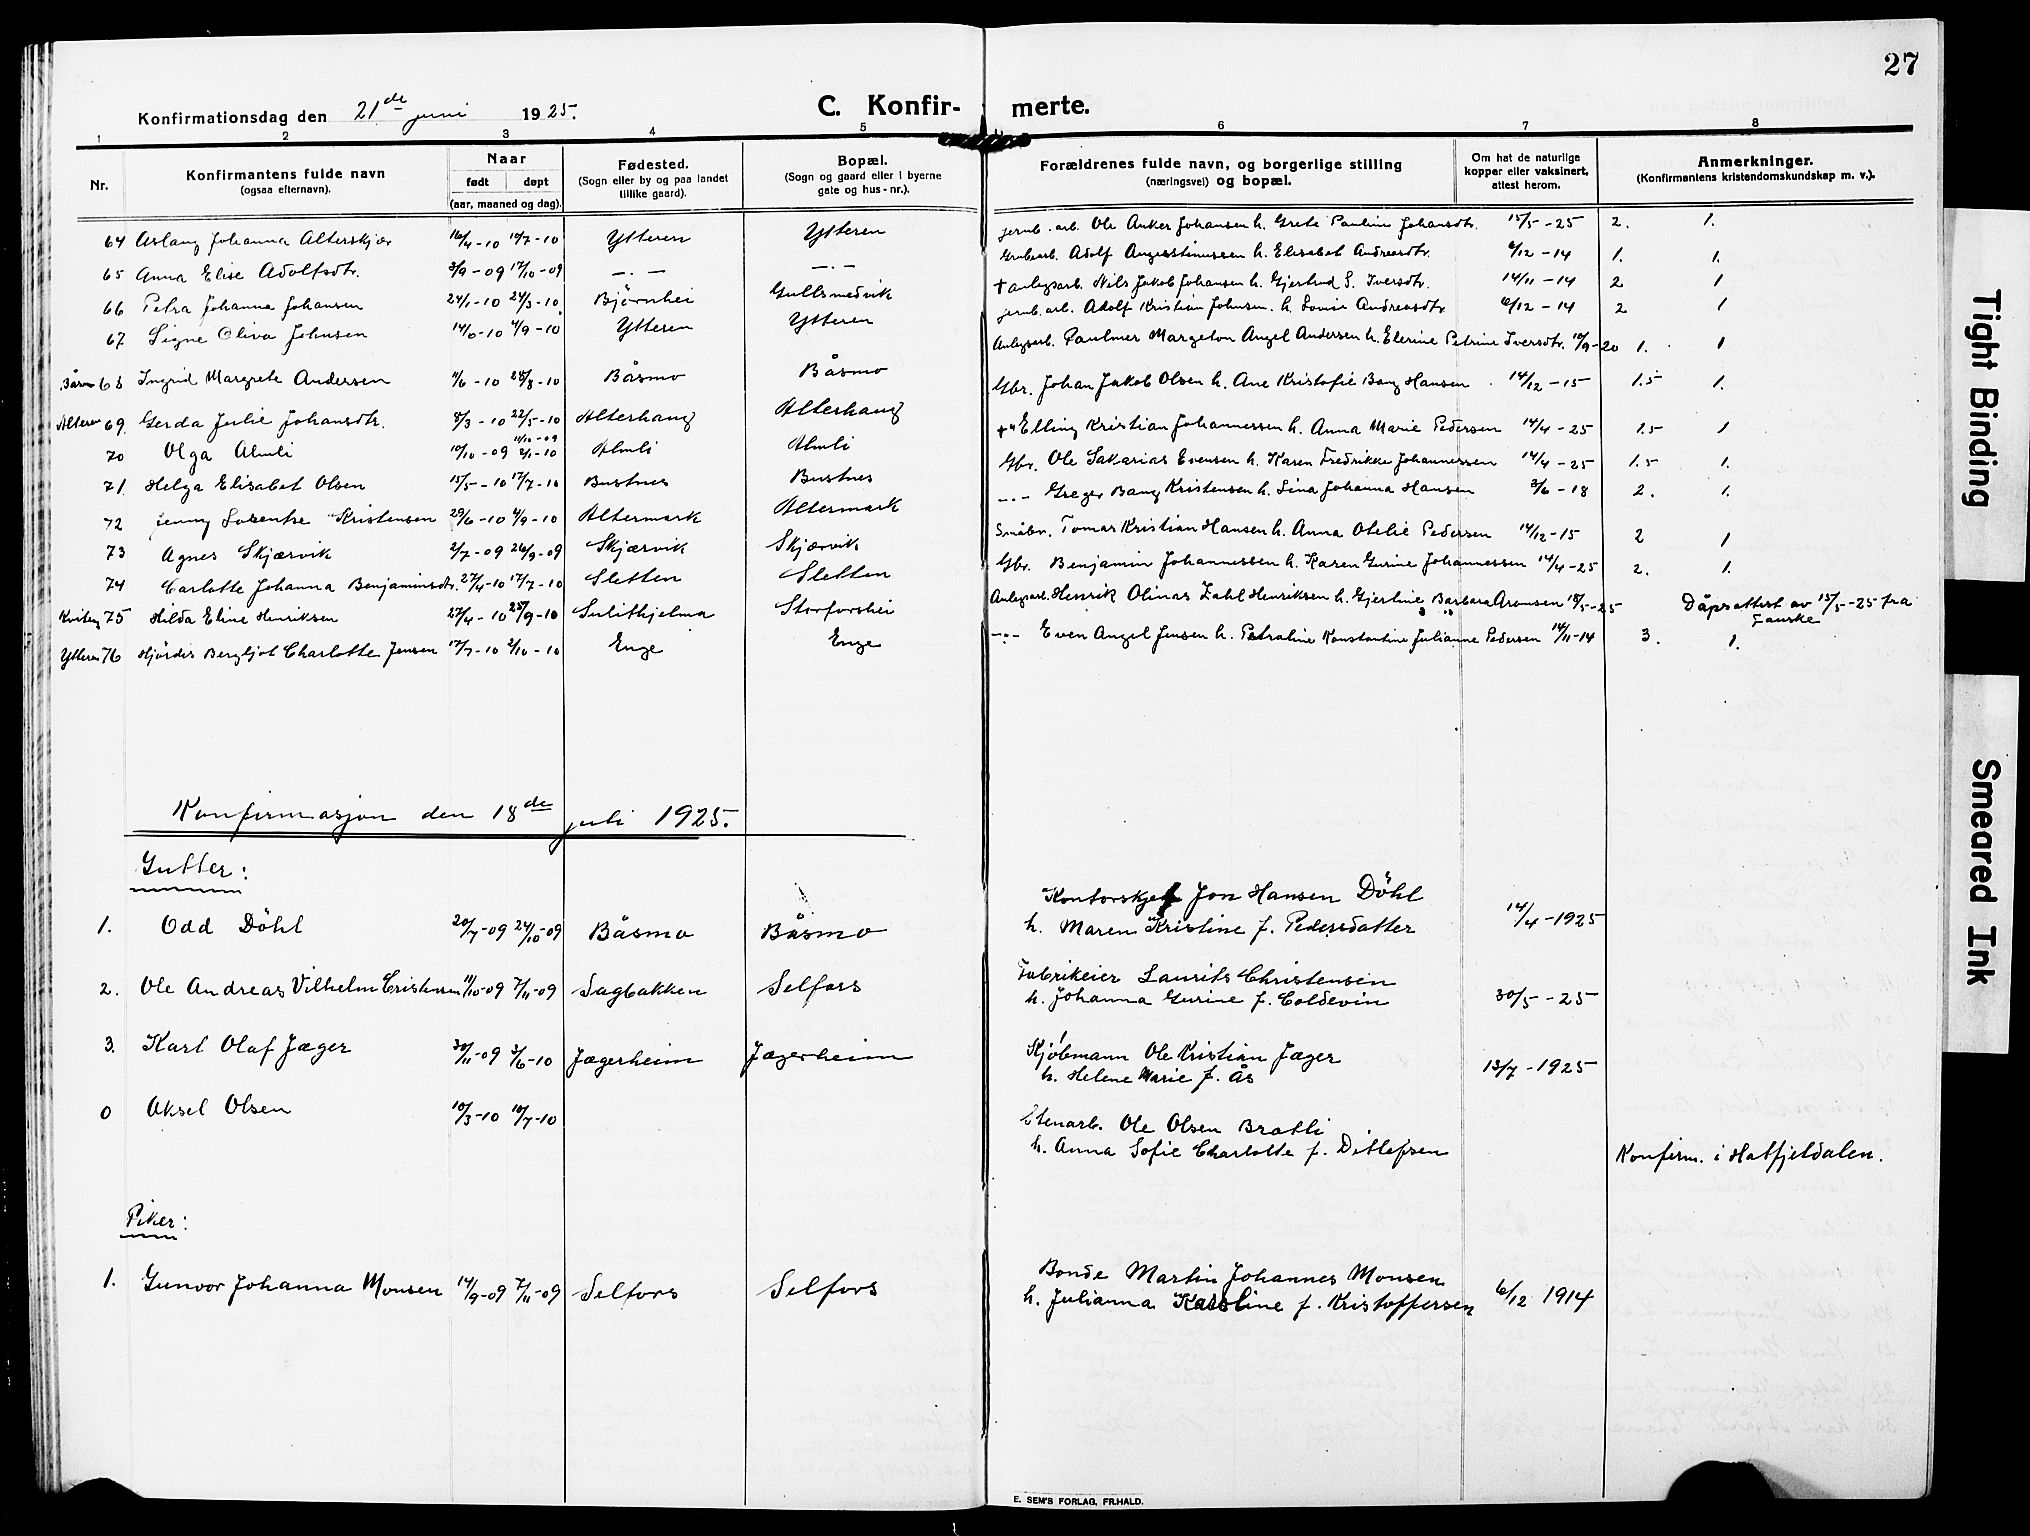 27
Konfirmationsdag den 21de juni 1925.
C. Konfir- merte.
1 2 3 4 5 6 7 8
Nr.
Konfirmantens fulde navn
(ogsaa efternavn).
Naar
født døpt
(aar, maaned og dag).
Fødested.
(Sogn eller by og paa landet
tillike gaard).
Bopæl.
(Sogn og gaard eller i byerne
gate og hus-nr.).
Forældrenes fulde navn, og borgerlige stilling
(næringsvei) og bopæl.
Om hat de naturlige
kopper eller vaksinert,
attest herom.
Anmerkninger.
(Konfirmantens kristendomskundskap m. v.).
64 Aslaug Johanna Alterskjær 16/4-10 10/7-10 Ytteren Ytteren jernb. arb. Ole Anker Johansen h. Grete Pauline Johansdtr. 15/5-25 2. 1.
65 Anna Elise Adolfsdtr. 3/9-09 17/10-09 -.- -.- Grubearb. Adolf Augustinussen h. Elisabet Andreasdtr. 6/12-14 1. 1.
66 Petra Johanna Johansen 24/1-10 24/3-10 Björnhei Gullsmedvik + anlegsarb. Nils Jakob Johansen h. Gjertrud S. Iversdtr. 14/11-14 2 1
67 Signe Oliva Johnsen 14/6-10 4/9-10 Ytteren Ytteren jernb. arb. Adolf Kristian Johnsen. h. Lovise Andreasdtr 6/12-14 2 1
68 Ingrid Margrete Andersen 11/6-10 28/8-10 Båsmo Båsmo Anlegsarb. Paulmer Margeton Angel Andersen h. Elerine Petrine Iversdtr. 10/9-20 1. 1
Alteren 69. Gerda Julie Johansdtr. 8/3-10 22/5-10 Alterhaug Alterhaug Gbr. Johan Jakob Olsen h. Ane Kristofie Bang Hansen 14/12-15 1.5 1.
70 Olga Almli 10/10-09 2/1-10 Almli Almli +" Elling Kristian Johannessen h. Anna Marie Pedersen 14/4-25 1.5 1
71. Helga Elisabet Olsen 15/5-10 17/7-10 Bustnes Bustnes Gbr. Ole Sakarias Evensen h. Karen Fredrikke Johannessen 14/4-25 1.5 1.
72 Jenny Lorentse Kristensen 29/6-10 4/9-10 Altermark Altermark -.- Greger Bang Kristensen h. Lina Johanna Hansen 3/6-18 2. 1.
73 Agnes Skjærvik 2/7-09 26/9-09 Skjærvik Skjærvik Småbr. Tomas Kristian Hansen h. Anna Otelie Pedersen 14/12-15 2 1
74 Carlotte Johanna Benjaminsdtr. 27/4-10 17/7-10 Sletten Sletten Gbr. Benjamin Johannessen h. Karen Gurine Johannessen 14/4-25 2. 1.
75 Hilda Eline Henriksen 27/4-10 25/9-10 Sulithjelma Storforshei Anlegsarb. Henrik Olinas Zahl Henriksen h. Gjertine Barbara Aronsen 18/5-25 Dåpsattest av 15/5-25 fra
Fauske
Ytteren 76 Hjördis Bergljot Charlotte Jensen 17/7-10 2/10-10 Enge Enge -.- Even Angel Jensen h. Petraline Konstantine Julianne Pedersen 14/11-14 3. 1.
Konfirmasjon den 18de juli 1925.
Gutter:
1. Odd Döhl 20/7-09 24/10-09 Båsmo Båsmo Kontorskjef Jon Hansen Döhl
h. Maren Kristine f. Pedersdatter 14/4-1925
2. Ole Andreas Vilhelm Cristensen 11/10-09 7/11-09 Sagbakken Selfors Fabrikeier Laurits Christensen
h. Johanna Gurine f. Coldevin 30/5-25
3. Karl Olaf Jæger 30/11-09 3/6-10 Jægerheim Jægerheim Kjøbmann Ole Kristian Jæger
h. Helene Marie f. Ås 13/7-1925
0 Aksel Olsen 10/3-10 10/7-10 Stenarb. Ole Olsen Bratli
h. Anna Sofie Charlotte f. Ditlefsen Konfirm. i Hatfjeldalen.
Piker:
1. Gunvor Johanna Monsen 14/9-09 7/11-09 Selfors Selfors Bonde Martin Johannes Monsen
h. Julianna Karoline f. Kristoffersen 6/12 1914
E. SEM'S FORLAG, FR.HALD.
Tight Binding
Smeared Ink